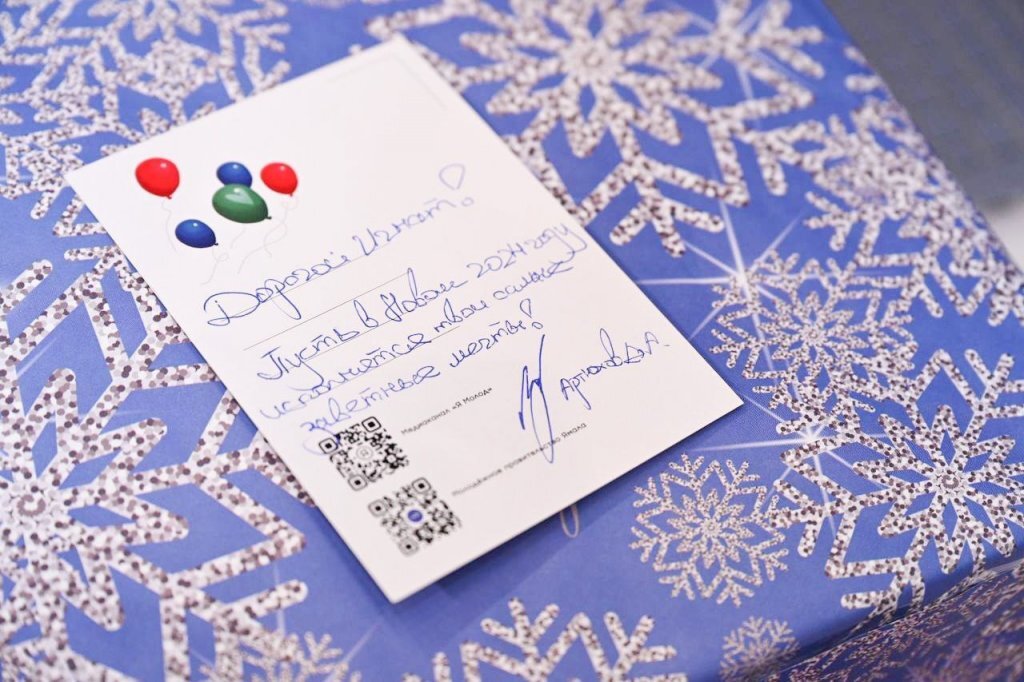 Дорогой Игнат!
Пусть в Новом 2024 году
исполнятся твои самые
заветные мечты!
Артюхов Д.А.
Медиаканал «Я Молод»
Молодёжное правительство Ямала